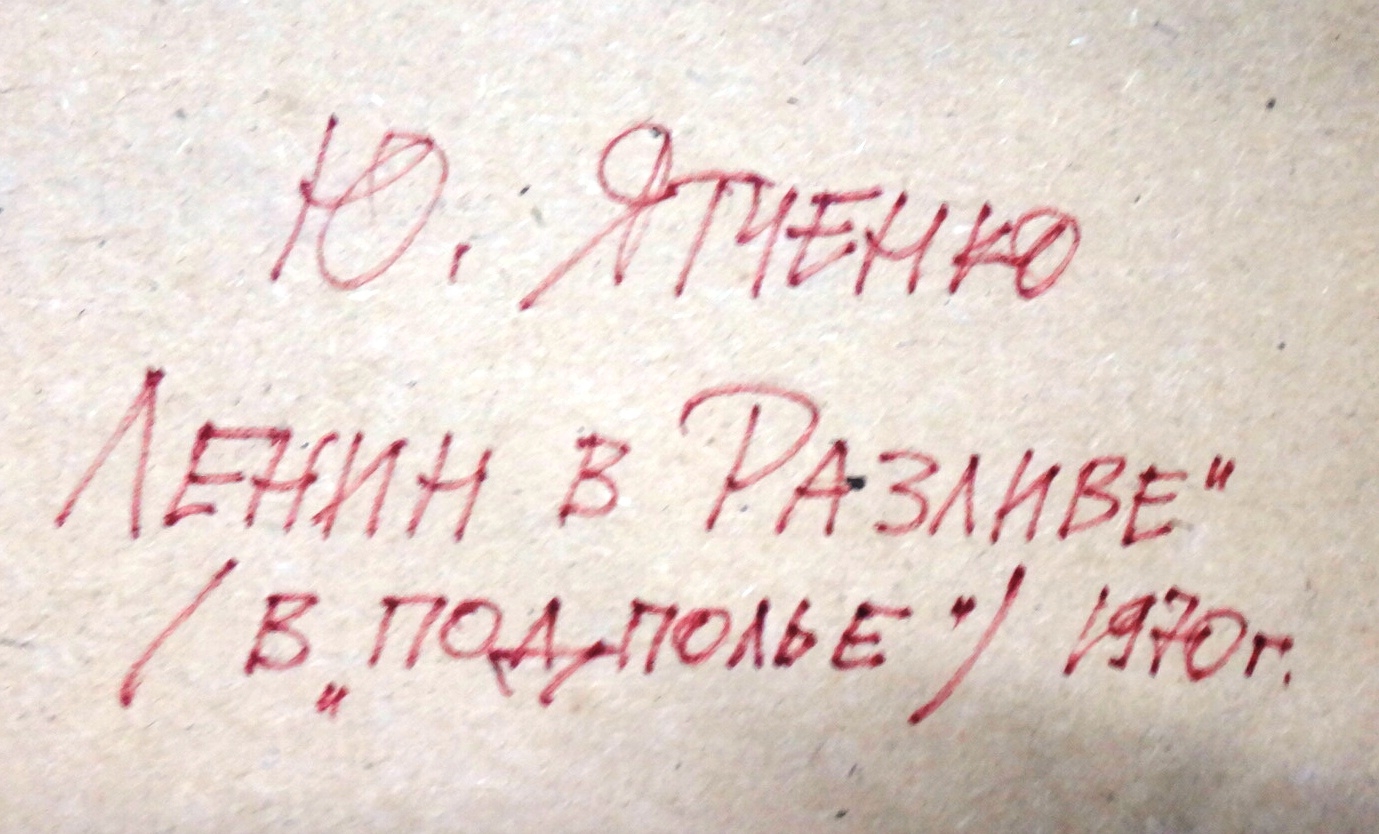 Ю. Ятченко
Ленин в Разливе"
/ в „подполье"/ 1970 г.